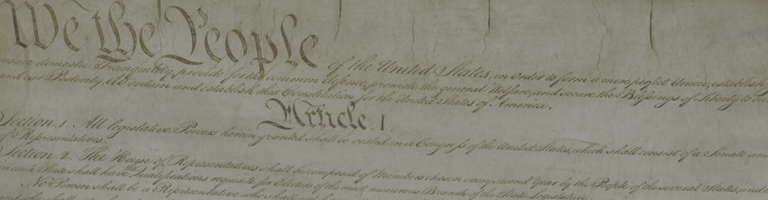 We the People of the United States, in Order to form a more perfect Union, establish
insure domestic Tranquility, provide for the common defence, promote the general Welfare, and secure the Blessings of Liberty to
and our Posterity, do ordain and establish this Constitution for the United States of America.
Article I.
Section 1. All legislative Powers herein granted shall be vested in a Congress of the United States, which shall consist of a Senate and
of Representatives.
Section 2. The House of Representatives shall be composed of Members chosen every second Year by the People of the several States, and
in each State shall have Qualifications requisite for Electors of the most numerous Branch of the State Legislature.
No Person shall be a Representative who shall not